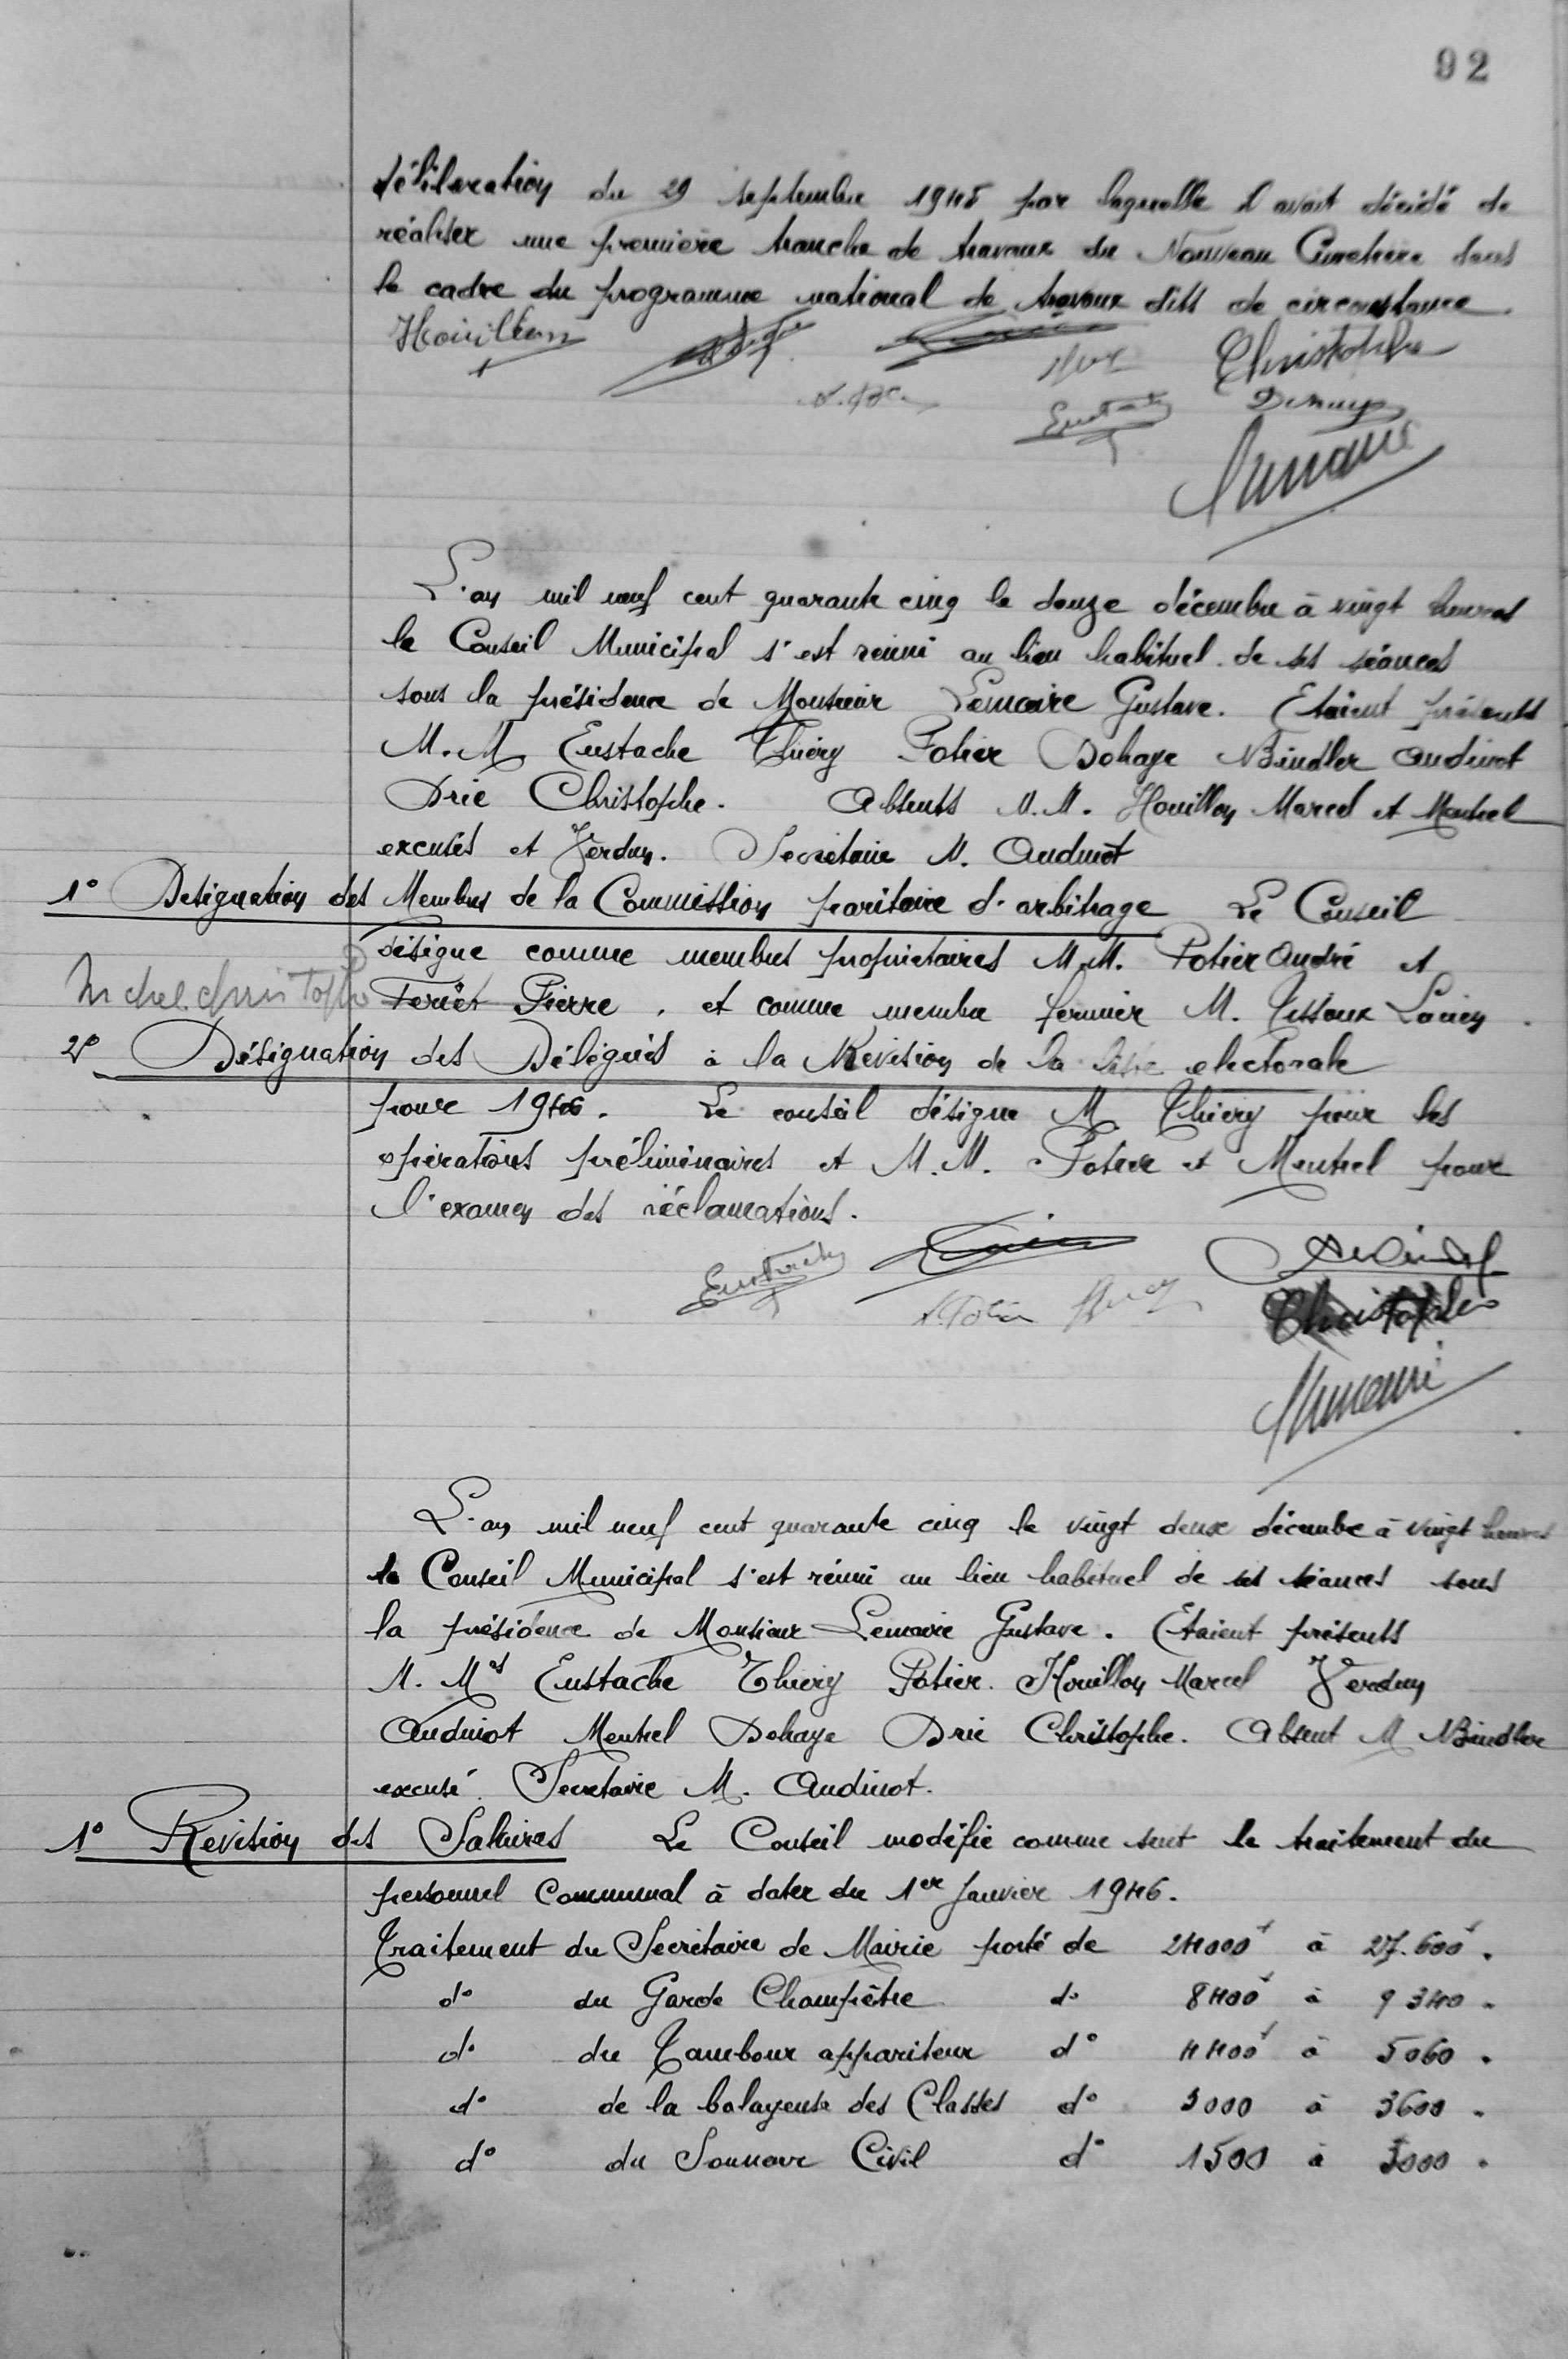 92
délibération du 29 septembre 1945 par laquelle il avait décidé de
réaliser une première tranche de travaux du Nouveau Cimetière dans
le cadre du programme national de travaux dits de circonstance.
Houillon
Christophe
Eustache Dehaye
Lemaire
L'an mil neuf cent quarante cinq le douze décembre à vingt heures
le Conseil Municipal s'est réuni au lieu habituel de ses séances
sous la présidence de Monsieur Lemaire Gustave. Etaient présents
M.M Eustache Thiéry Potier Dehaye Bindler Audinot
Drié Christophe. Absents M.M. Houillon Marcel et Mentrel
excusés et Verdun. Secrétaire M. Audinot
1° Designation des Membres de la Commission paritaire d'arbitrage Le Conseil
désigne comme membres propriétaires M.M. Potier André et
Michel Christophe Feriet Pierre. et comme membre fermier M. Tissoux Lucien.
2° Désignation des Délégués à la Revision de la liste electorale
pour 1946. Le conseil désigne M Thiery pour les
opérations préliminaires et M.M. Potier et Mentrel pour
l'examen des réclamations.
Eustache
A. Potier
Christophe
Lemaire
L'an mil neuf cent quarante cinq le vingt deux décembre à vingt heures
le Conseil Municipal s'est réuni au lieu habituel de ses séances sous
la présidence de Monsieur Lemaire Gustave. Etaient présents
M. Mrs Eustache Thiery Potier. Houillon Marcel Verdun
Audinot Mentrel Dehaye Drié Christophe. Absent M Bindler
excusé. Secretaire M. Audinot.
1° Revision des Salaires Le Conseil modifie comme suit le traitement du
personnel Communal à dater du 1er Janvier 1946.
Traitement du Secrétaire de Mairie porté de 24000f à 27.600f.
d° du Garde Champêtre d° 8400f à 9340.
d° du Tambour appariteur d° 4400f à 5060.
d° de la balayeuse des Classes d° 3000 à 3600.
d° du Sonneur Civil d° 1500 à 3000.